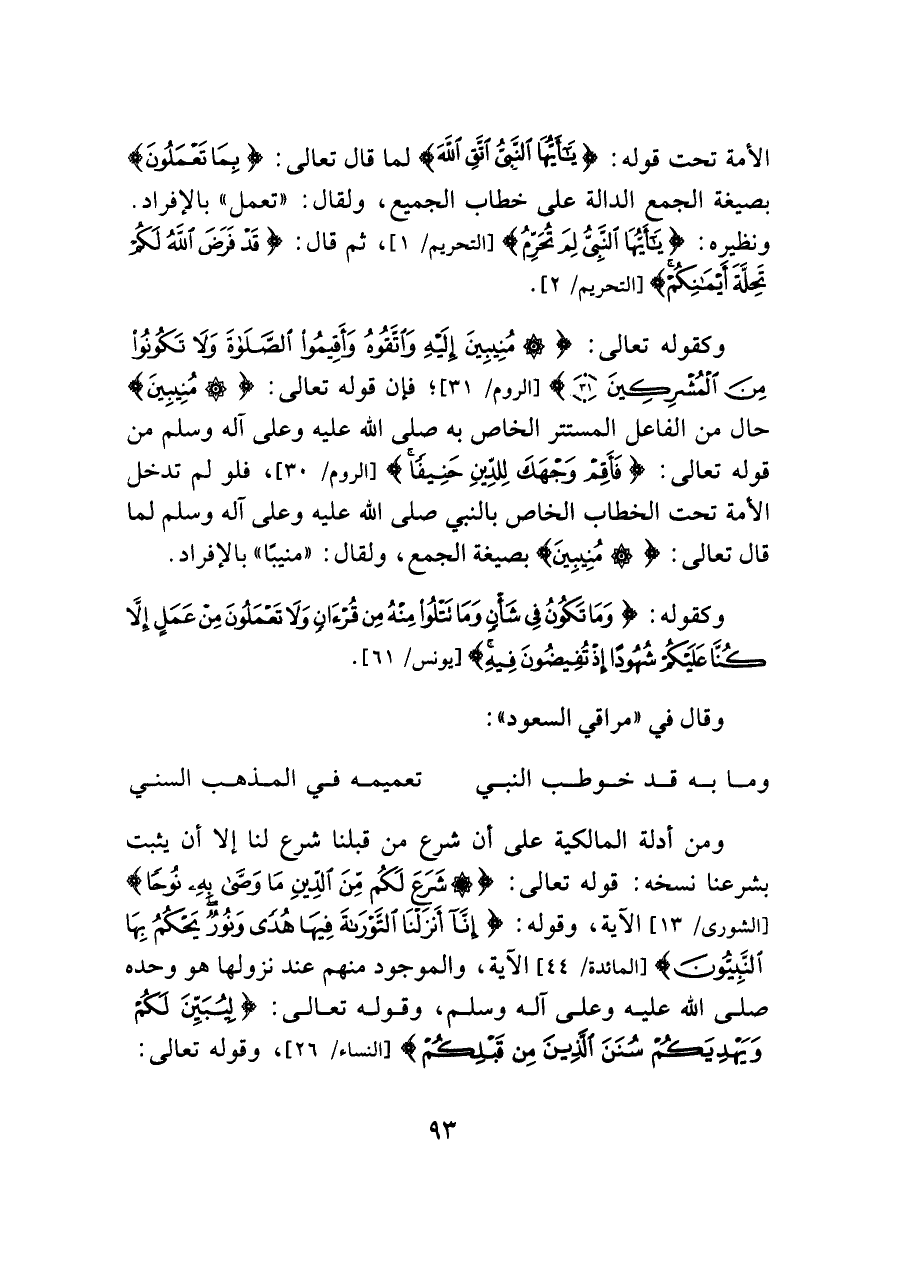 الأمة تحت قوله: ﴿يَٰٓأَيُّهَا ٱلنَّبِىُّ ٱتَّقِ ٱللَّهَ﴾ لما قال تعالى: ﴿بِمَا تَعْمَلُونَ﴾
بصيغة الجمع الدالة على خطاب الجميع، ولقال: «تعمل» بالإفراد.
ونظيره: ﴿يَٰٓأَيُّهَا ٱلنَّبِىُّ لِمَ تُحَرِّمُ﴾ [التحريم/ ١]، ثم قال: ﴿قَدْ فَرَضَ ٱللَّهُ لَكُمْ
تَحِلَّةَ أَيْمَٰنِكُمْۚ﴾ [التحريم/ ٢].
وكقوله تعالى: ﴿۞ مُنِيبِينَ إِلَيْهِ وَٱتَّقُوهُ وَأَقِيمُوا۟ ٱلصَّلَوٰةَ وَلَا تَكُونُوا۟
مِنَ ٱلْمُشْرِكِينَ ٣١﴾ [الروم/ ٣١]؛ فإن قوله تعالى: ﴿۞ مُنِيبِينَ﴾
حال من الفاعل المستتر الخاص به صلى الله عليه وعلى آله وسلم من
قوله تعالى: ﴿فَأَقِمْ وَجْهَكَ لِلدِّينِ حَنِيفًاۚ﴾ [الروم/ ٣٠]، فلو لم تدخل
الأمة تحت الخطاب الخاص بالنبي صلى الله عليه وعلى آله وسلم لما
قال تعالى: ﴿۞ مُنِيبِينَ﴾ بصيغة الجمع، ولقال: «منيبًا» بالإفراد.
وكقوله: ﴿وَمَا تَكُونُ فِى شَأْنٍ وَمَا نَتْلُوا۟ مِنْهُ مِن قُرْءَانٍ وَلَا تَعْمَلُونَ مِنْ عَمَلٍ إِلَّا
كُنَّا عَلَيْكُمْ شُهُودًا إِذْ تُفِيضُونَ فِيهِۚ﴾ [يونس/ ٦١].
وقال في «مراقي السعود»:
ومـا بـه قـد خـوطـب النبـي تعميمـه فـي المـذهـب السنـي
ومن أدلة المالكية على أن شرع من قبلنا شرع لنا إلا أن يثبت
بشرعنا نسخه: قوله تعالى: ﴿۞ شَرَعَ لَكُم مِّنَ ٱلدِّينِ مَا وَصَّىٰ بِهِۦ نُوحًا﴾
[الشورى/ ١٣] الآية، وقوله: ﴿إِنَّآ أَنزَلْنَا ٱلتَّوْرَىٰةَ فِيهَا هُدًى وَنُورٌۚ يَحْكُمُ بِهَا
ٱلنَّبِيُّونَ﴾ [المائدة/ ٤٤] الآية، والموجود منهم عند نزولها هو وحده
صلـى الله عليـه وعلـى آلـه وسلـم، وقـولـه تعـالـى: ﴿لِيُبَيِّنَ لَكُمْ
وَيَهْدِيَكُمْ سُنَنَ ٱلَّذِينَ مِن قَبْلِكُمْ﴾ [النساء/ ٢٦]، وقوله تعالى:
٩٣